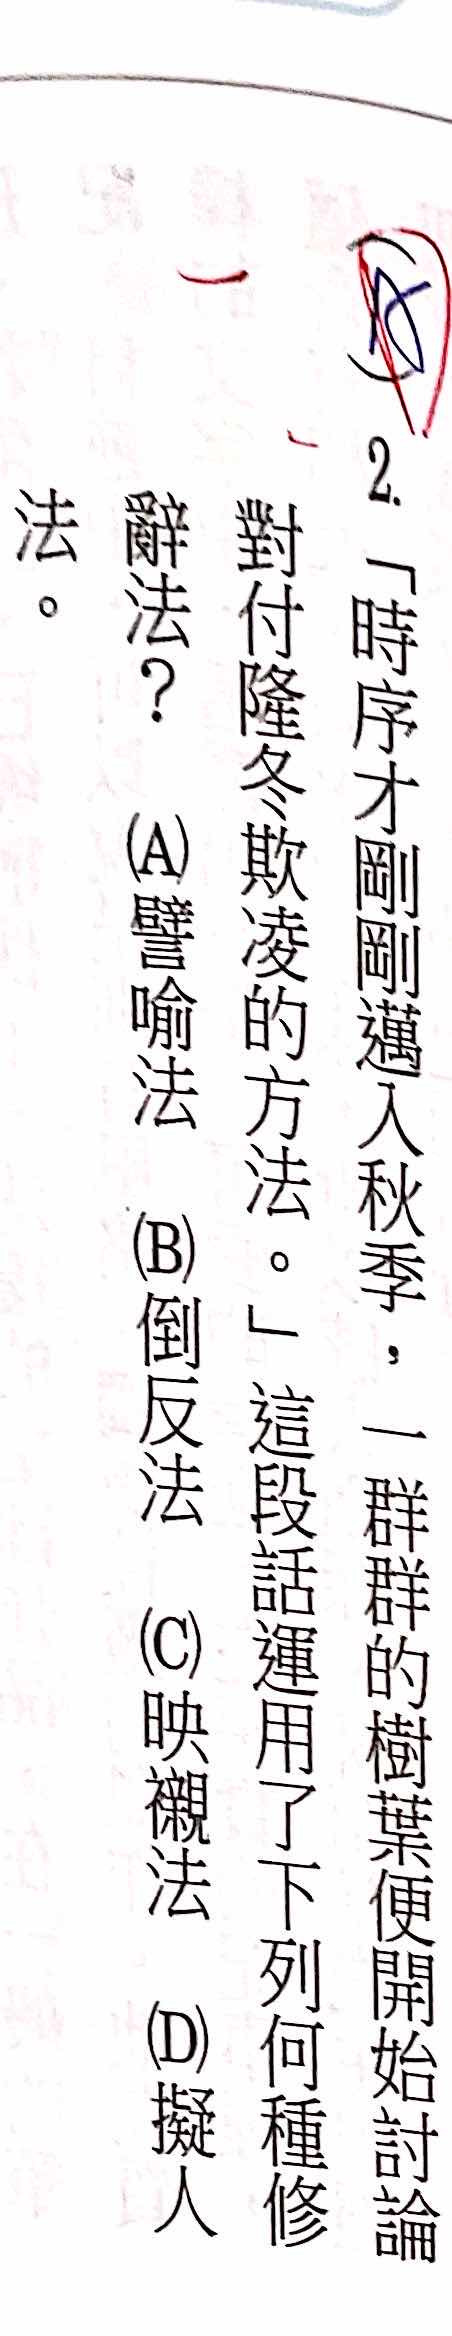 2.「時序才剛剛邁入秋季，一群群的樹葉便開始討論
對付隆冬欺凌的方法。」這段話運用了下列何種修
辭法？ (A)譬喻法 (B)倒反法 (C)映襯法 (D)擬人
法。